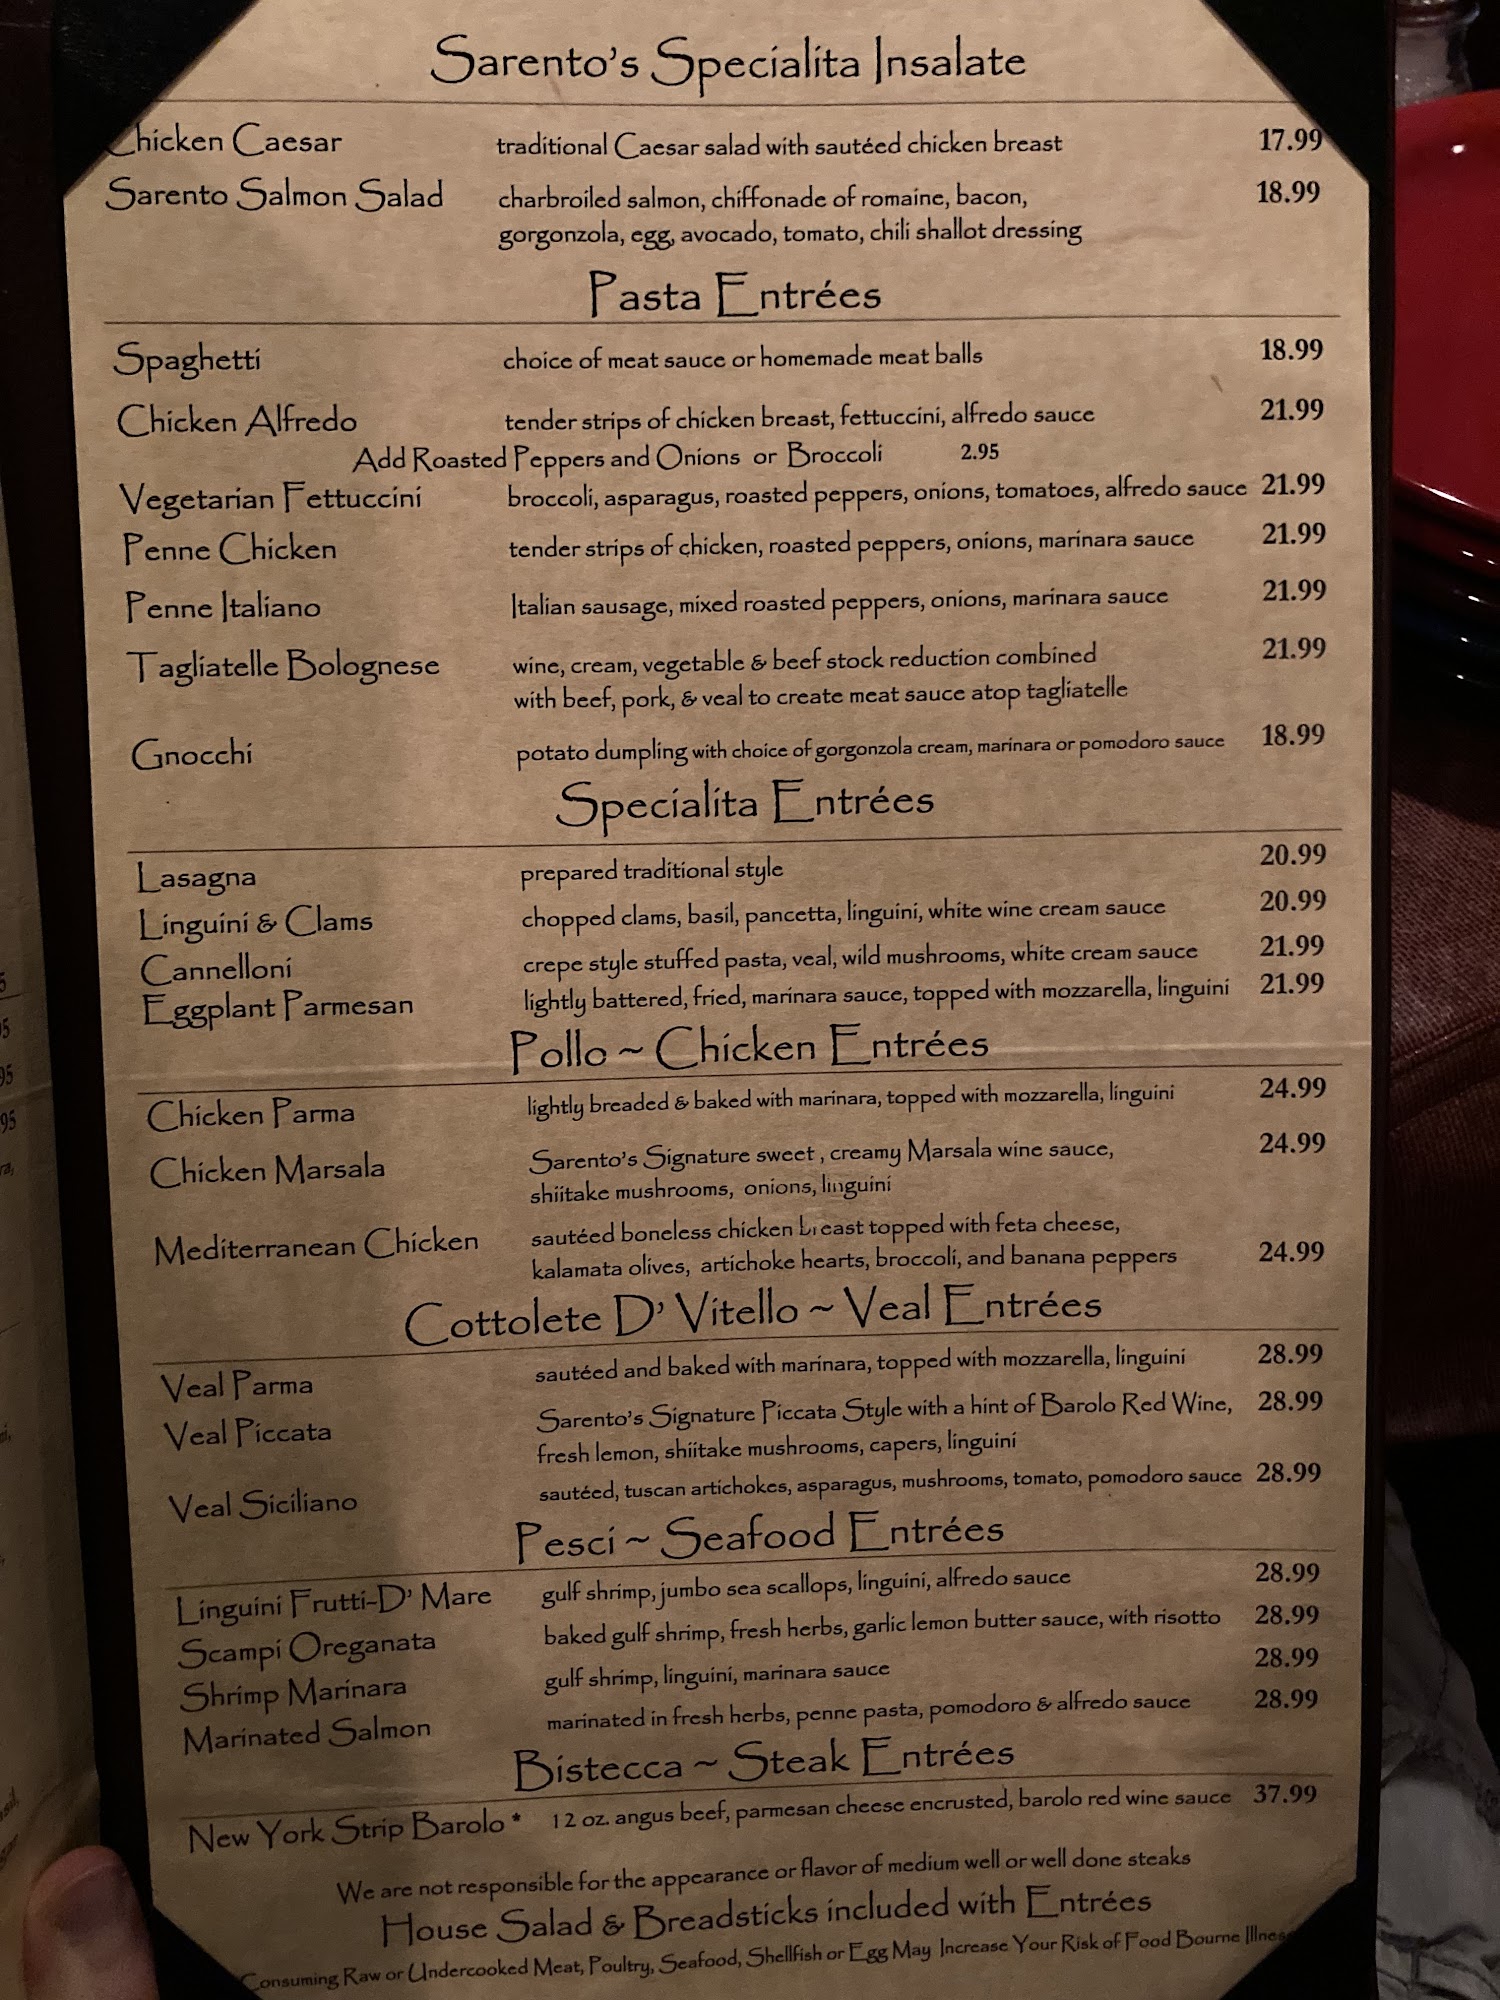 Sarento's Specialita Insalate
Chicken Caesar traditional Caesar salad with sautéed chicken breast 17.99
Sarento Salmon Salad charbroiled salmon, chiffonade of romaine, bacon, 18.99
gorgonzola, egg, avocado, tomato, chili shallot dressing
Pasta Entrées
Spaghetti choice of meat sauce or homemade meat balls 18.99
Chicken Alfredo tender strips of chicken breast, fettuccini, alfredo sauce 21.99
Add Roasted Peppers and Onions or Broccoli 2.95
Vegetarian Fettuccini broccoli, asparagus, roasted peppers, onions, tomatoes, alfredo sauce 21.99
Penne Chicken tender strips of chicken, roasted peppers, onions, marinara sauce 21.99
Penne Italiano Italian sausage, mixed roasted peppers, onions, marinara sauce 21.99
Tagliatelle Bolognese wine, cream, vegetable & beef stock reduction combined 21.99
with beef, pork, & veal to create meat sauce atop tagliatelle
Gnocchi potato dumpling with choice of gorgonzola cream, marinara or pomodoro sauce 18.99
Specialita Entrées
Lasagna prepared traditional style 20.99
Linguini & Clams chopped clams, basil, pancetta, linguini, white wine cream sauce 20.99
Cannelloni crepe style stuffed pasta, veal, wild mushrooms, white cream sauce 21.99
Eggplant Parmesan lightly battered, fried, marinara sauce, topped with mozzarella, linguini 21.99
Pollo ~ Chicken Entrées
Chicken Parma lightly breaded & baked with marinara, topped with mozzarella, linguini 24.99
Chicken Marsala Sarento's Signature sweet , creamy Marsala wine sauce, 24.99
shiitake mushrooms, onions, linguini
Mediterranean Chicken sautéed boneless chicken breast topped with feta cheese,
kalamata olives, artichoke hearts, broccoli, and banana peppers 24.99
Cottolete D' Vitello ~ Veal Entrées
Veal Parma sautéed and baked with marinara, topped with mozzarella, linguini 28.99
Veal Piccata Sarento's Signature Piccata Style with a hint of Barolo Red Wine, 28.99
fresh lemon, shiitake mushrooms, capers, linguini
Veal Siciliano sautéed, tuscan artichokes, asparagus, mushrooms, tomato, pomodoro sauce 28.99
Pesci ~ Seafood Entrées
Linguini Frutti-D' Mare gulf shrimp, jumbo sea scallops, linguini, alfredo sauce 28.99
Scampi Oreganata baked gulf shrimp, fresh herbs, garlic lemon butter sauce, with risotto 28.99
Shrimp Marinara gulf shrimp, linguini, marinara sauce 28.99
Marinated Salmon marinated in fresh herbs, penne pasta, pomodoro & alfredo sauce 28.99
Bistecca ~ Steak Entrées
New York Strip Barolo * 12 oz. angus beef, parmesan cheese encrusted, barolo red wine sauce 37.99
We are not responsible for the appearance or flavor of medium well or well done steaks
House Salad & Breadsticks included with Entrées
Consuming Raw or Undercooked Meat, Poultry, Seafood, Shellfish or Egg May Increase Your Risk of Food Bourne